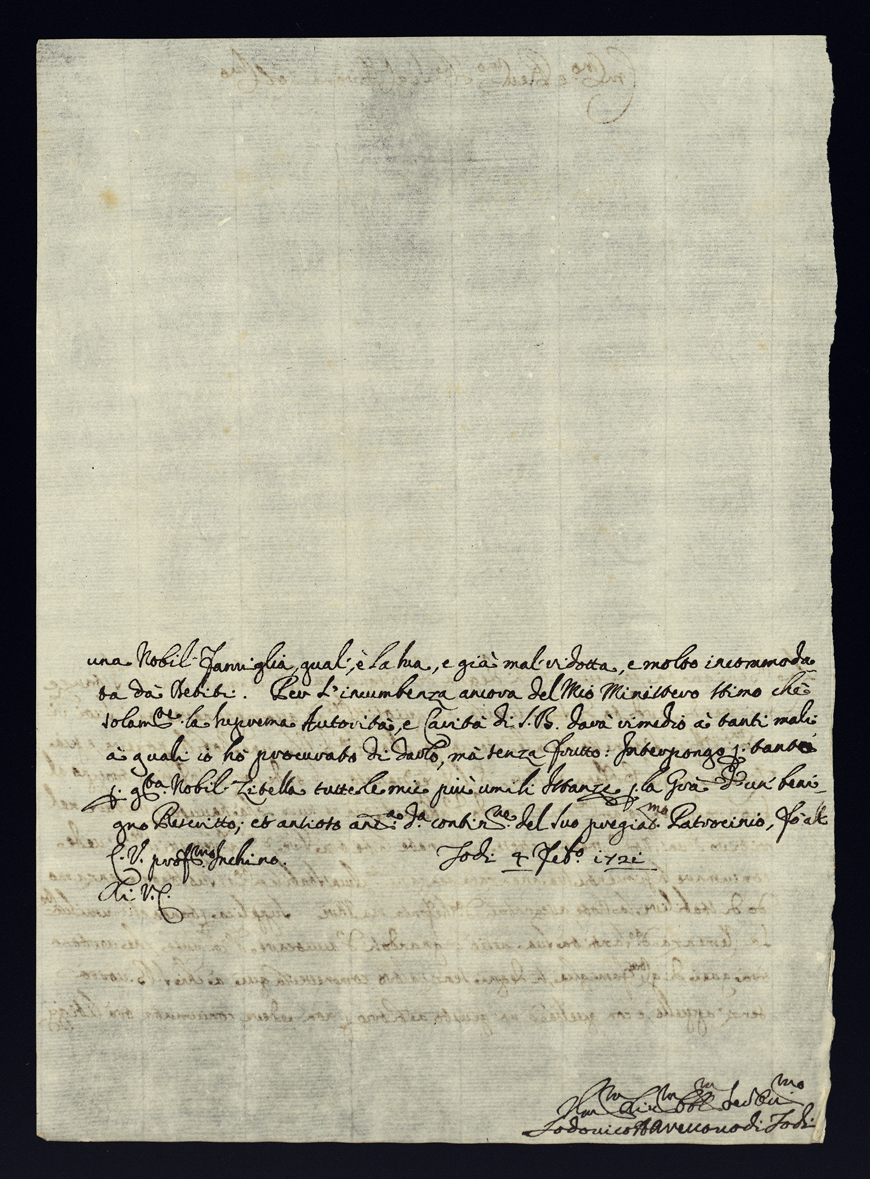 una Nobil Famiglia, qual'è la sua, e già mal ridotta, e molto incommoda
ta dà Debiti. Per l'incumbenza ancora del Mio Ministero stimo che
solam.te la suprema Autorità, e Carità di S. B. darà rimedio à tanti mali
à quali io hò procurato di darlo, mà senza frutto: Interpongo p. tanto
p. q.ta Nobil Zitella tutte le mie più umili Istanze p. la Gra d'un beni
gno Rescritto; et ansioso della contin.ne del suo pregiat.mo Patrocinio, fò all
E. V. prof.mo Inchino. Todi 4 Feb.o 1721
Di V. E.
Lodovico Vescovo di Todi